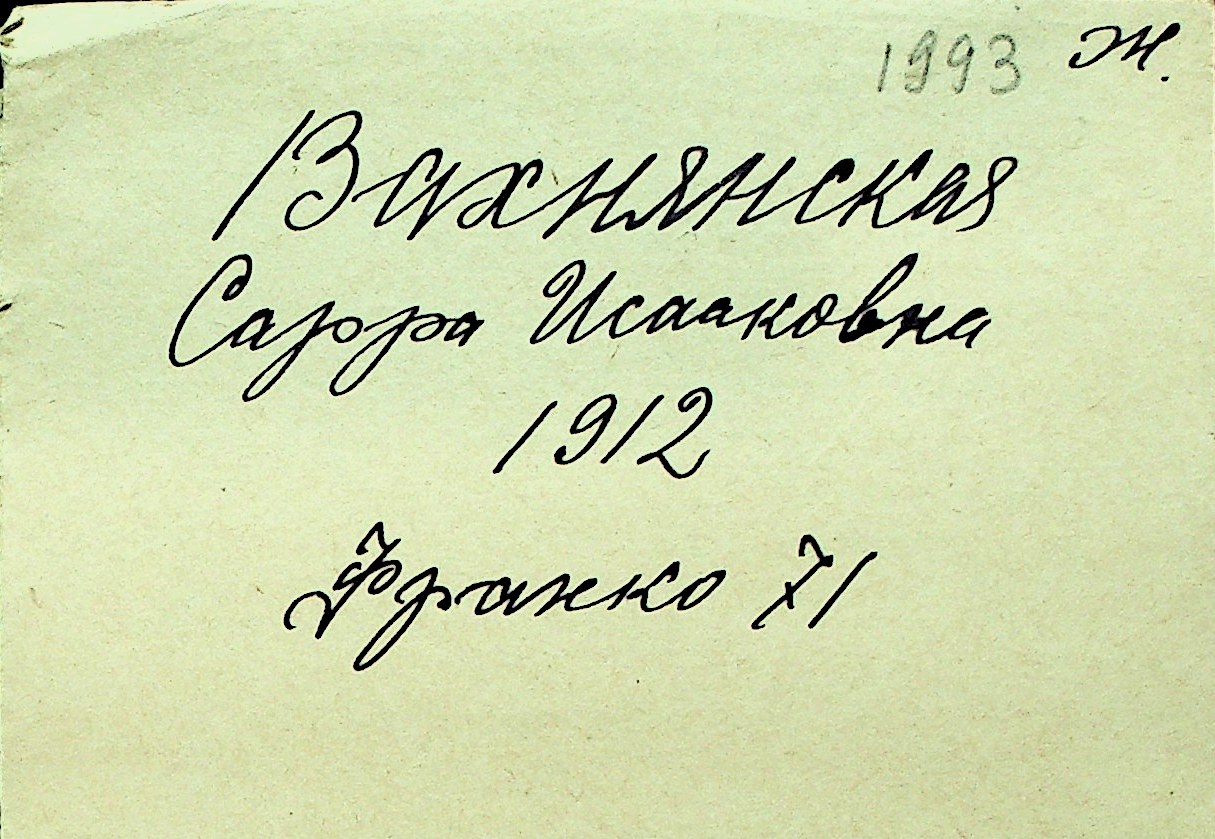 1993 Ж.
Вахнянская
Сарра Исааковна
1912
Франко 71